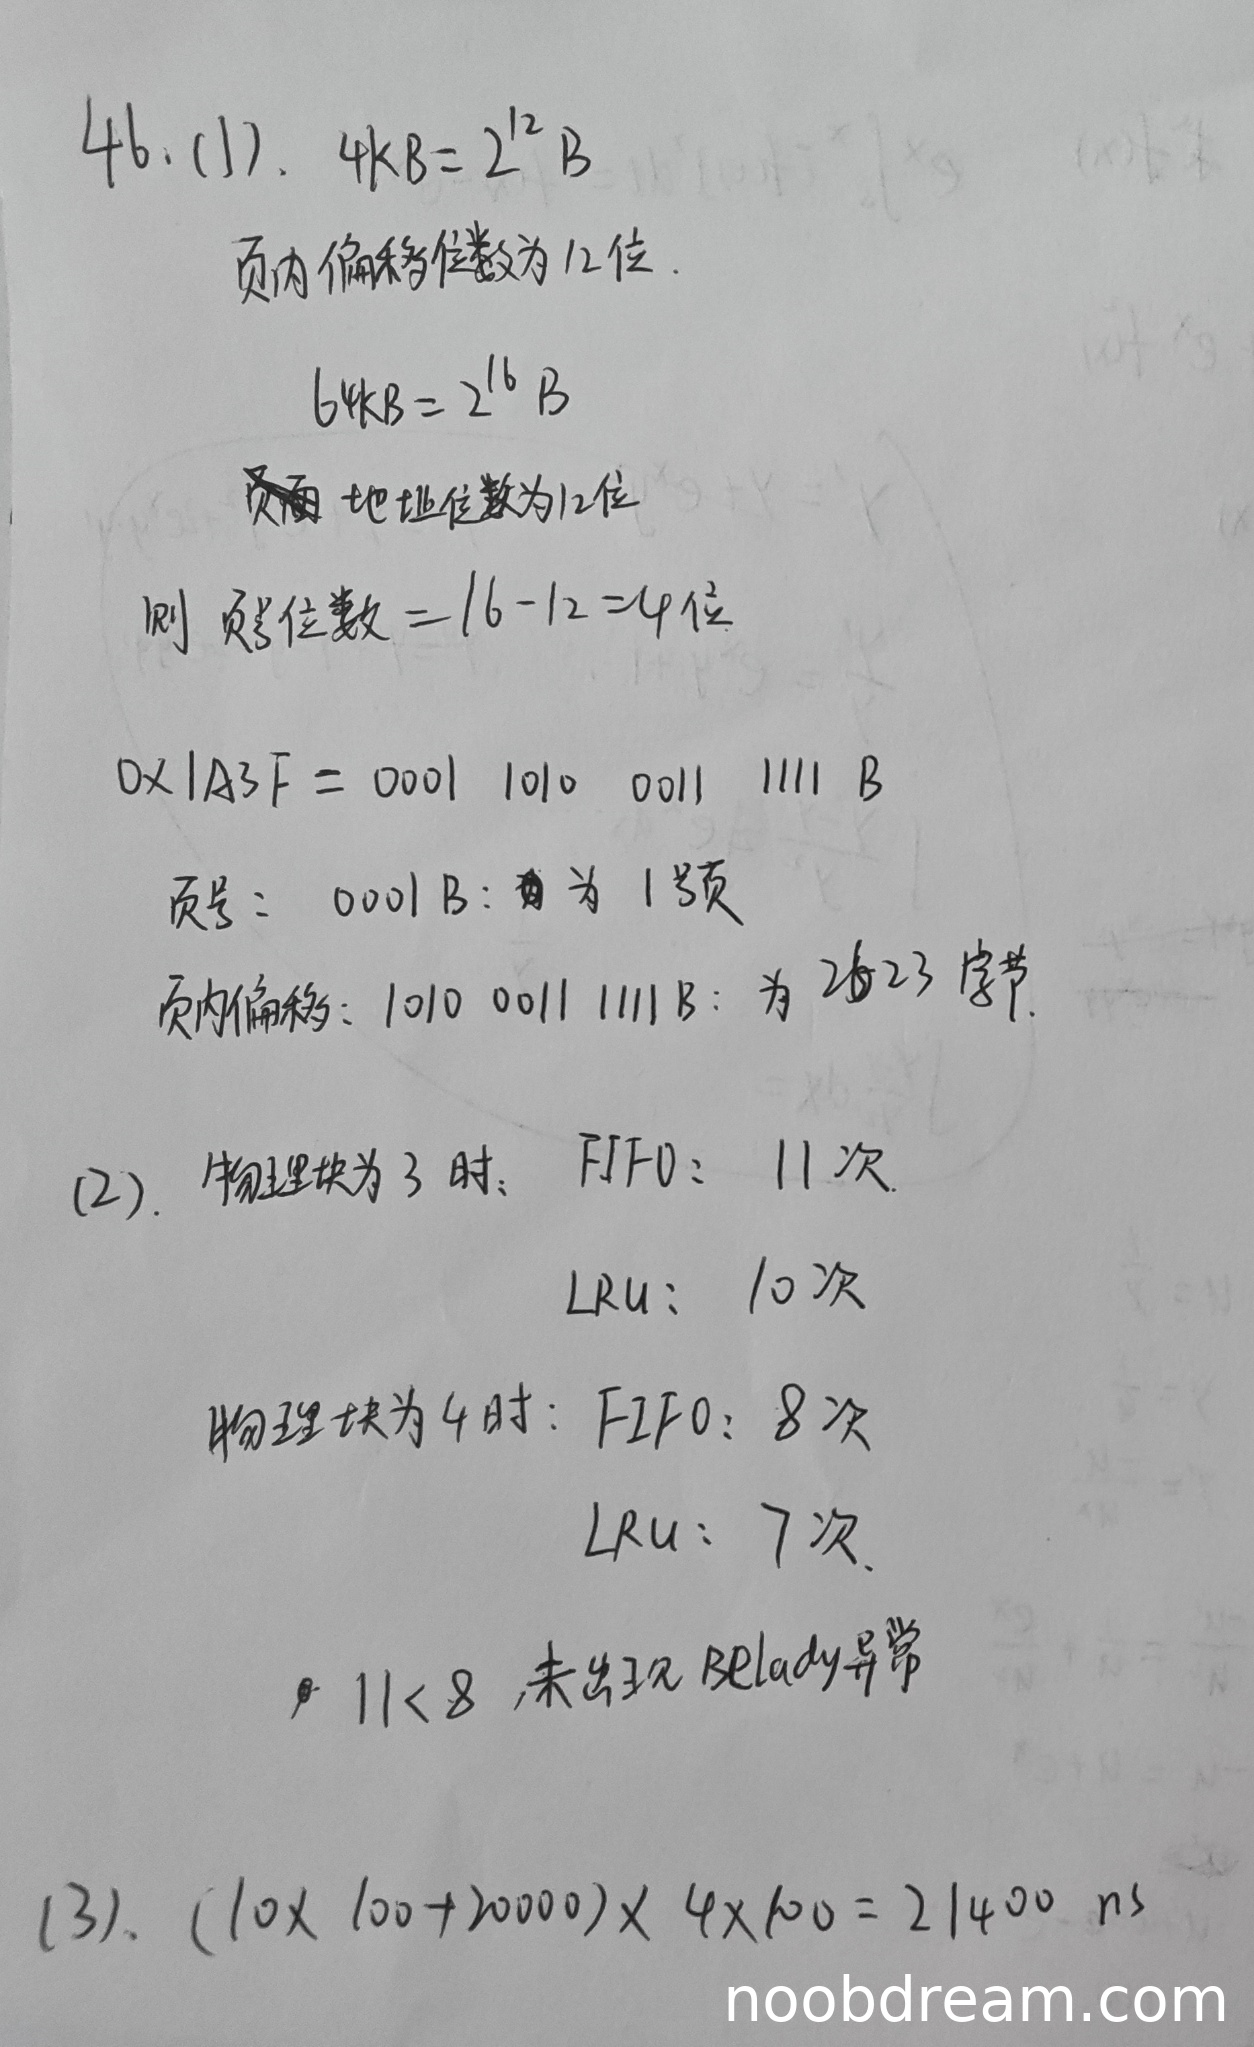 46.(1). 4KB=2^12 B
页内偏移位数为12位.
64KB=2^16 B
地址位数为12位
则 页号位数=16-12=4位
0X1A3F = 0001 1010 0011 1111 B
页号: 0001B: 为 1号页
页内偏移: 1010 0011 1111B: 为 2623 字节.
(2). 物理块为3时: FIFO: 11次.
LRU: 10次
物理块为4时: FIFO: 8次
LRU: 7次.
11<8 ,未出现Belady异常
(3). (10X 100+20000)X 4X100=21400 ns
noobdream.com